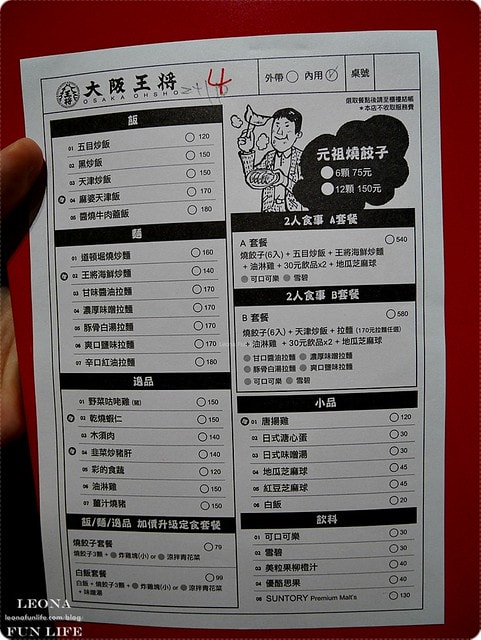 大阪王将
OSAKA OHSHO
4
外帶 內用 桌號
選取餐點後請至櫃檯結帳
*本店不收取服務費
飯
01 五目炒飯 120
02 黑炒飯 150
03 天津炒飯 150
04 麻婆天津飯 170
05 醬燒牛肉蓋飯 180
麵
01 道頓堀燒炒麵 160
02 王將海鮮炒麵 140
03 甘味醬油拉麵 170
04 濃厚味噌拉麵 170
05 豚骨白湯拉麵 170
06 爽口鹽味拉麵 170
07 辛口紅油拉麵 180
逸品
01 野菜咕咾雞 150
02 乾燒蝦仁 150
03 木須肉 140
04 韭菜炒豬肝 140
05 彩的食蔬 120
06 油淋雞 150
07 薑汁燒豬 150
飯/麵/逸品 加價升級定食套餐
燒餃子套餐 79
燒餃子3顆 + 炸雞塊(小) or 涼拌青花菜
白飯套餐 99
白飯 + 燒餃子3顆 + 炸雞塊(小) or 涼拌青花菜
+ 味噌湯
元祖燒餃子
6顆 75元
12顆 150元
2人食事 A套餐
A 套餐 540
燒餃子(6入) + 五目炒飯 + 王將海鮮炒麵
+ 油淋雞 + 30元飲品x2 + 地瓜芝麻球
可口可樂 雪碧
2人食事 B套餐
B 套餐 580
燒餃子(6入) + 天津炒飯 + 拉麵 (170元拉麵任選)
+ 油淋雞 + 30元飲品x2 + 地瓜芝麻球
甘口醬油拉麵 濃厚味噌拉麵
豚骨白湯拉麵 爽口鹽味拉麵
可口可樂 雪碧
小品
01 唐揚雞 120
02 日式溏心蛋 30
03 日式味噌湯 30
04 地瓜芝麻球 45
05 紅豆芝麻球 45
06 白飯 20
飲料
01 可口可樂 30
02 雪碧 30
03 美粒果柳橙汁 40
04 優酪思果 40
05 SUNTORY Premium Malt's 130
LEONA
leonafunlife.com/blog
FUN LIFE